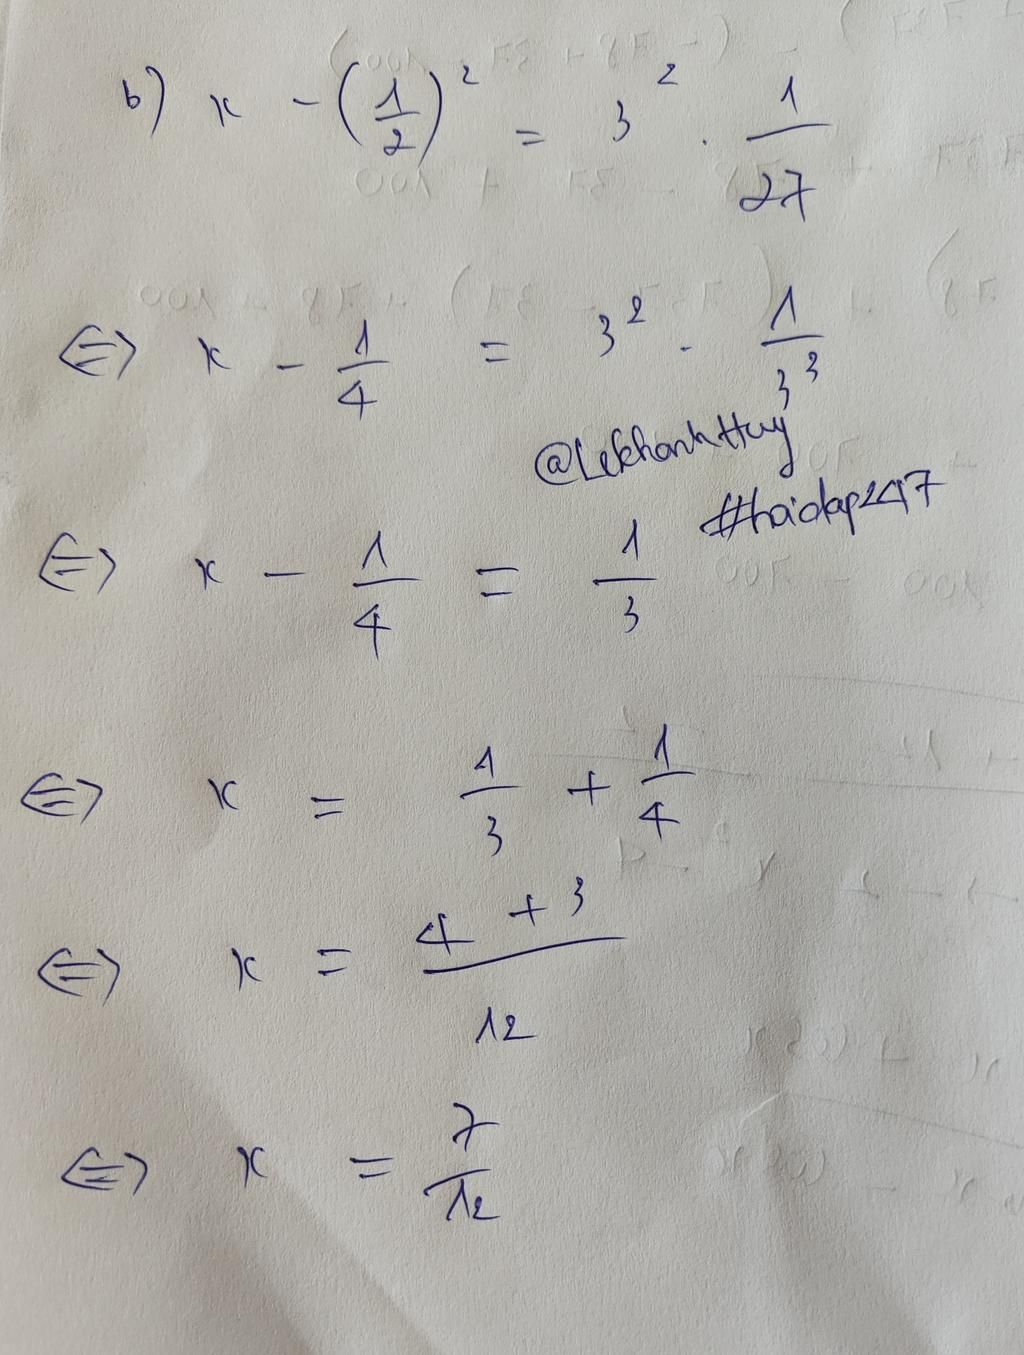 b) x - (1/2)² = 3² . 1/27
⇔ x - 1/4 = 3² . 1/3³
@LekhanhHuy
#hoidap247
⇔ x - 1/4 = 1/3
⇔ x = 1/3 + 1/4
⇔ x = (4 + 3)/12
⇔ x = 7/12